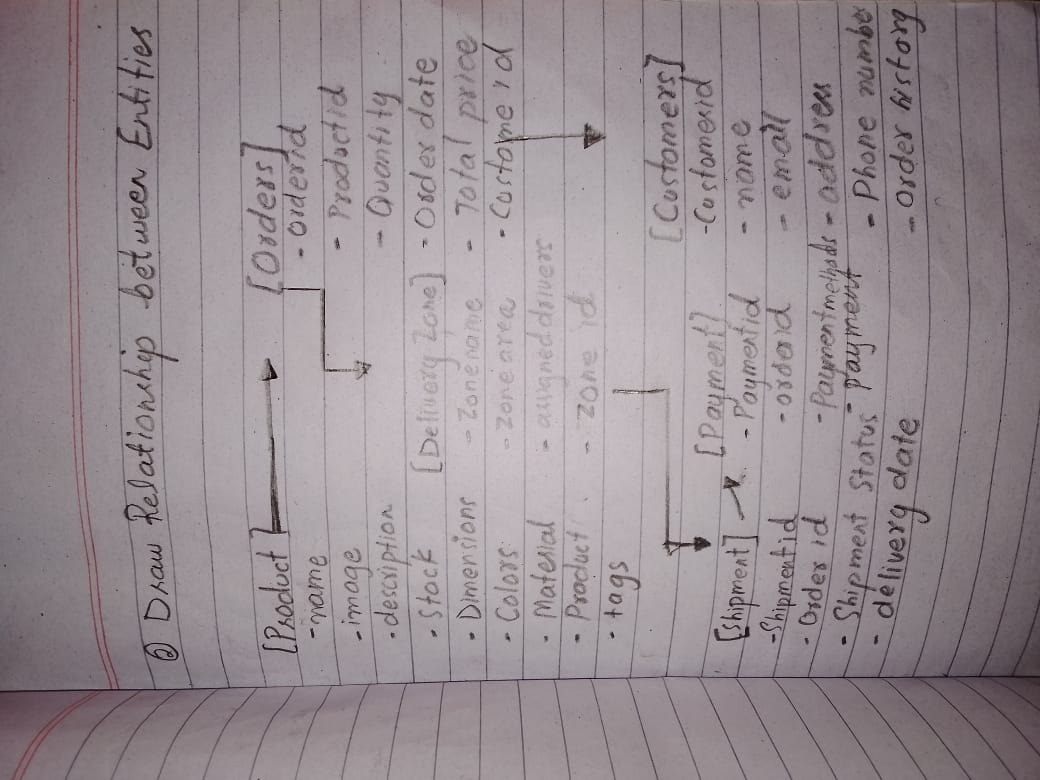 ② Draw Relationship between Entities
[Product]
- name
- image
- description
- Stock
- Dimensions
- Colors
- Material
- Product
- tags
[Orders]
- orderid
- Productid
- Quantity
- Order date
- Total price
- Custome id
[Delivery Zone]
- Zonename
- zonearea
- assigneddrivers
- zone id
[Shipment]
- Shipmentid
- Order id
- Shipment Status
- delivery date
[Payment]
- Paymentid
- orderid
- Paymentmethods
- Payment
[Customers]
- Customerid
- name
- email
- address
- Phone number
- order history